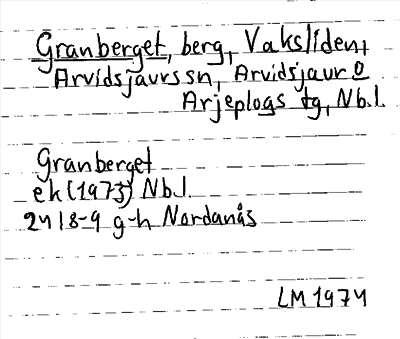 Granberget, berg, Vaksliden,
Arvidsjaurs sn, Arvidsjaur o
Arjeplogs tg, Nb.l.
Granberget
ek (1973) Nb.l.
24 I 8-9 g-h Nordanås
LM 1974